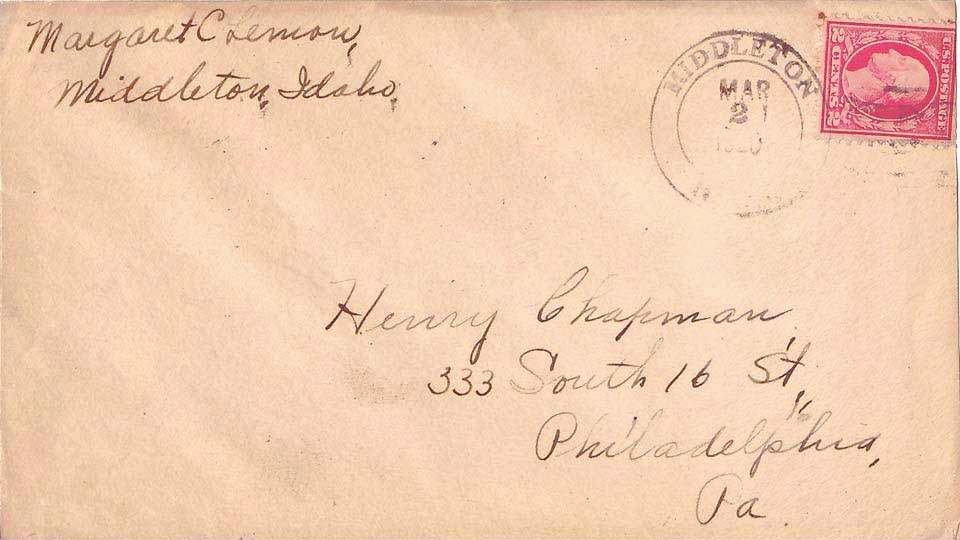 Margaret C Lemon,
Middleton, Idaho,
MIDDLETON
MAR
2
US POSTAGE
2 CENTS 2
Henry Chapman
333 South 16 St,
Philadelphia,
Pa